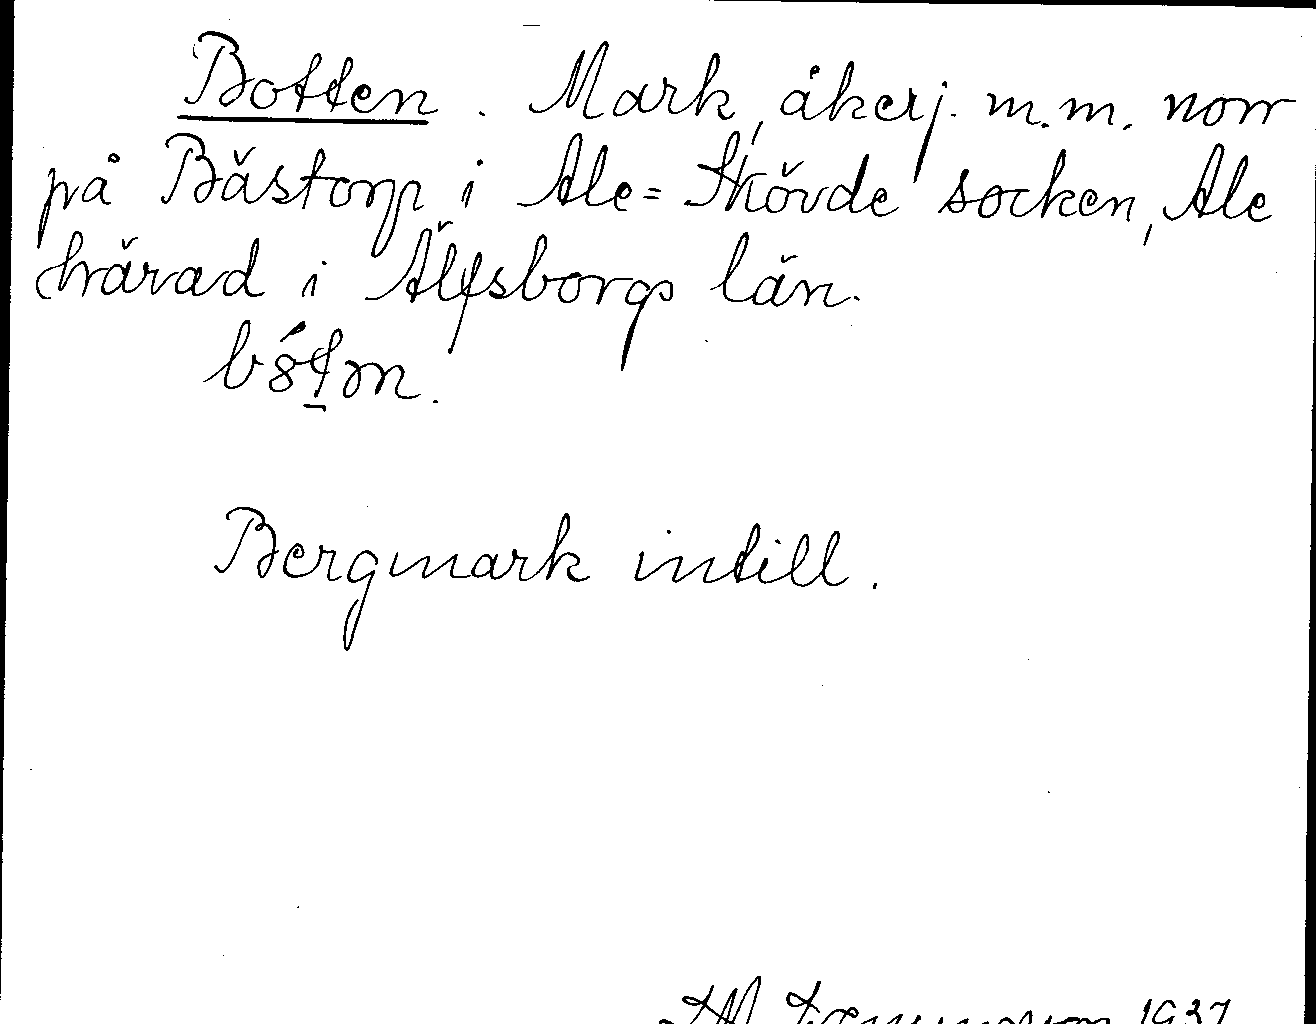 Botten. Mark, åkerj. m.m. norr
på Båstorp i Ale=Skövde socken, Ale
härad i Älfsborgs län.
Bergmark intill.
1937